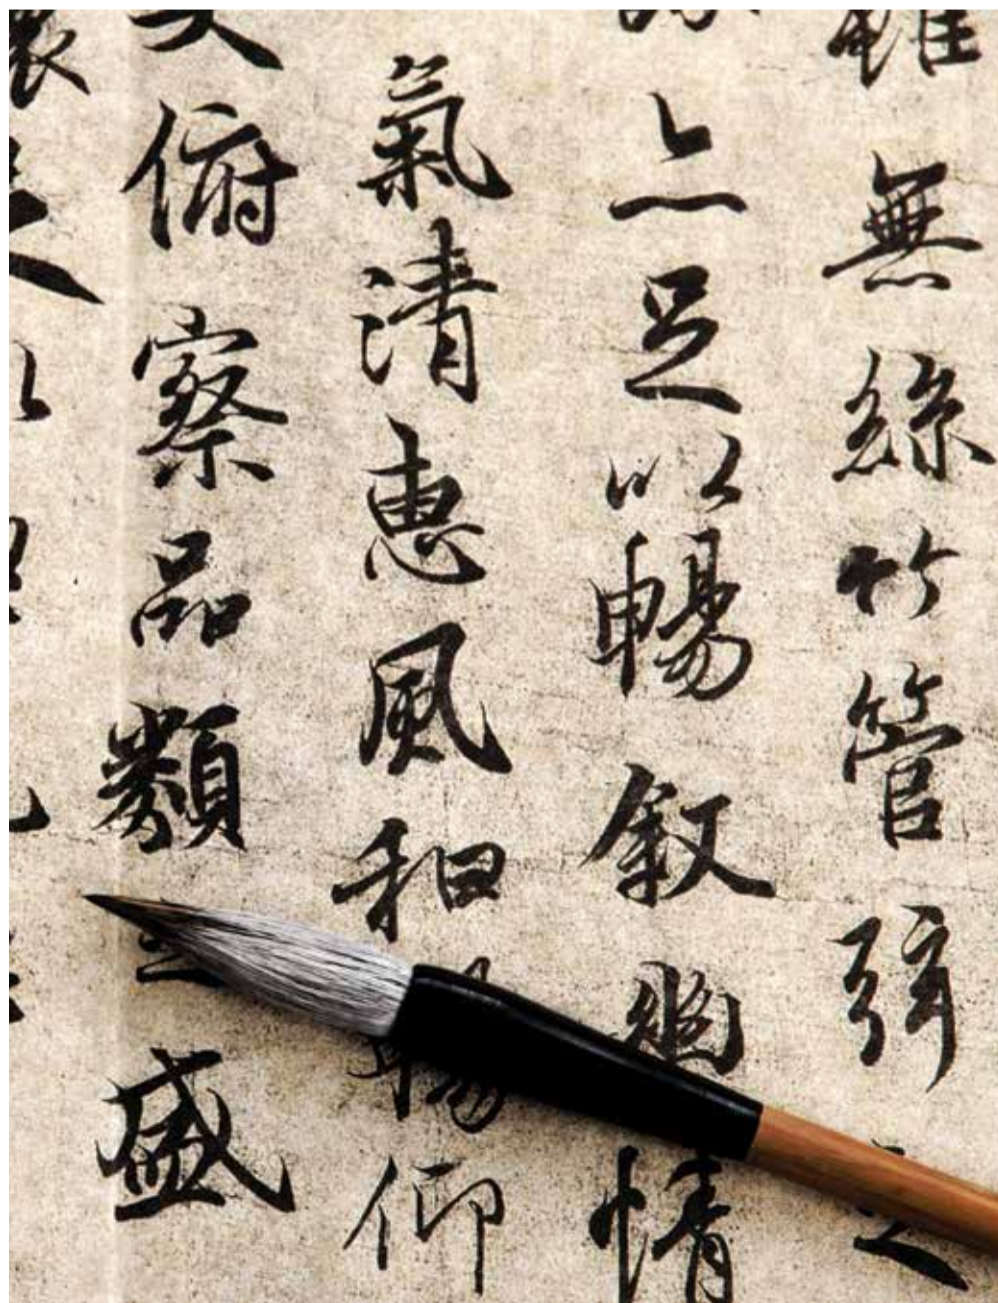 雖無絲竹管弦之
亦足以暢叙幽情
氣清惠風和暢仰
大俯察品類之盛